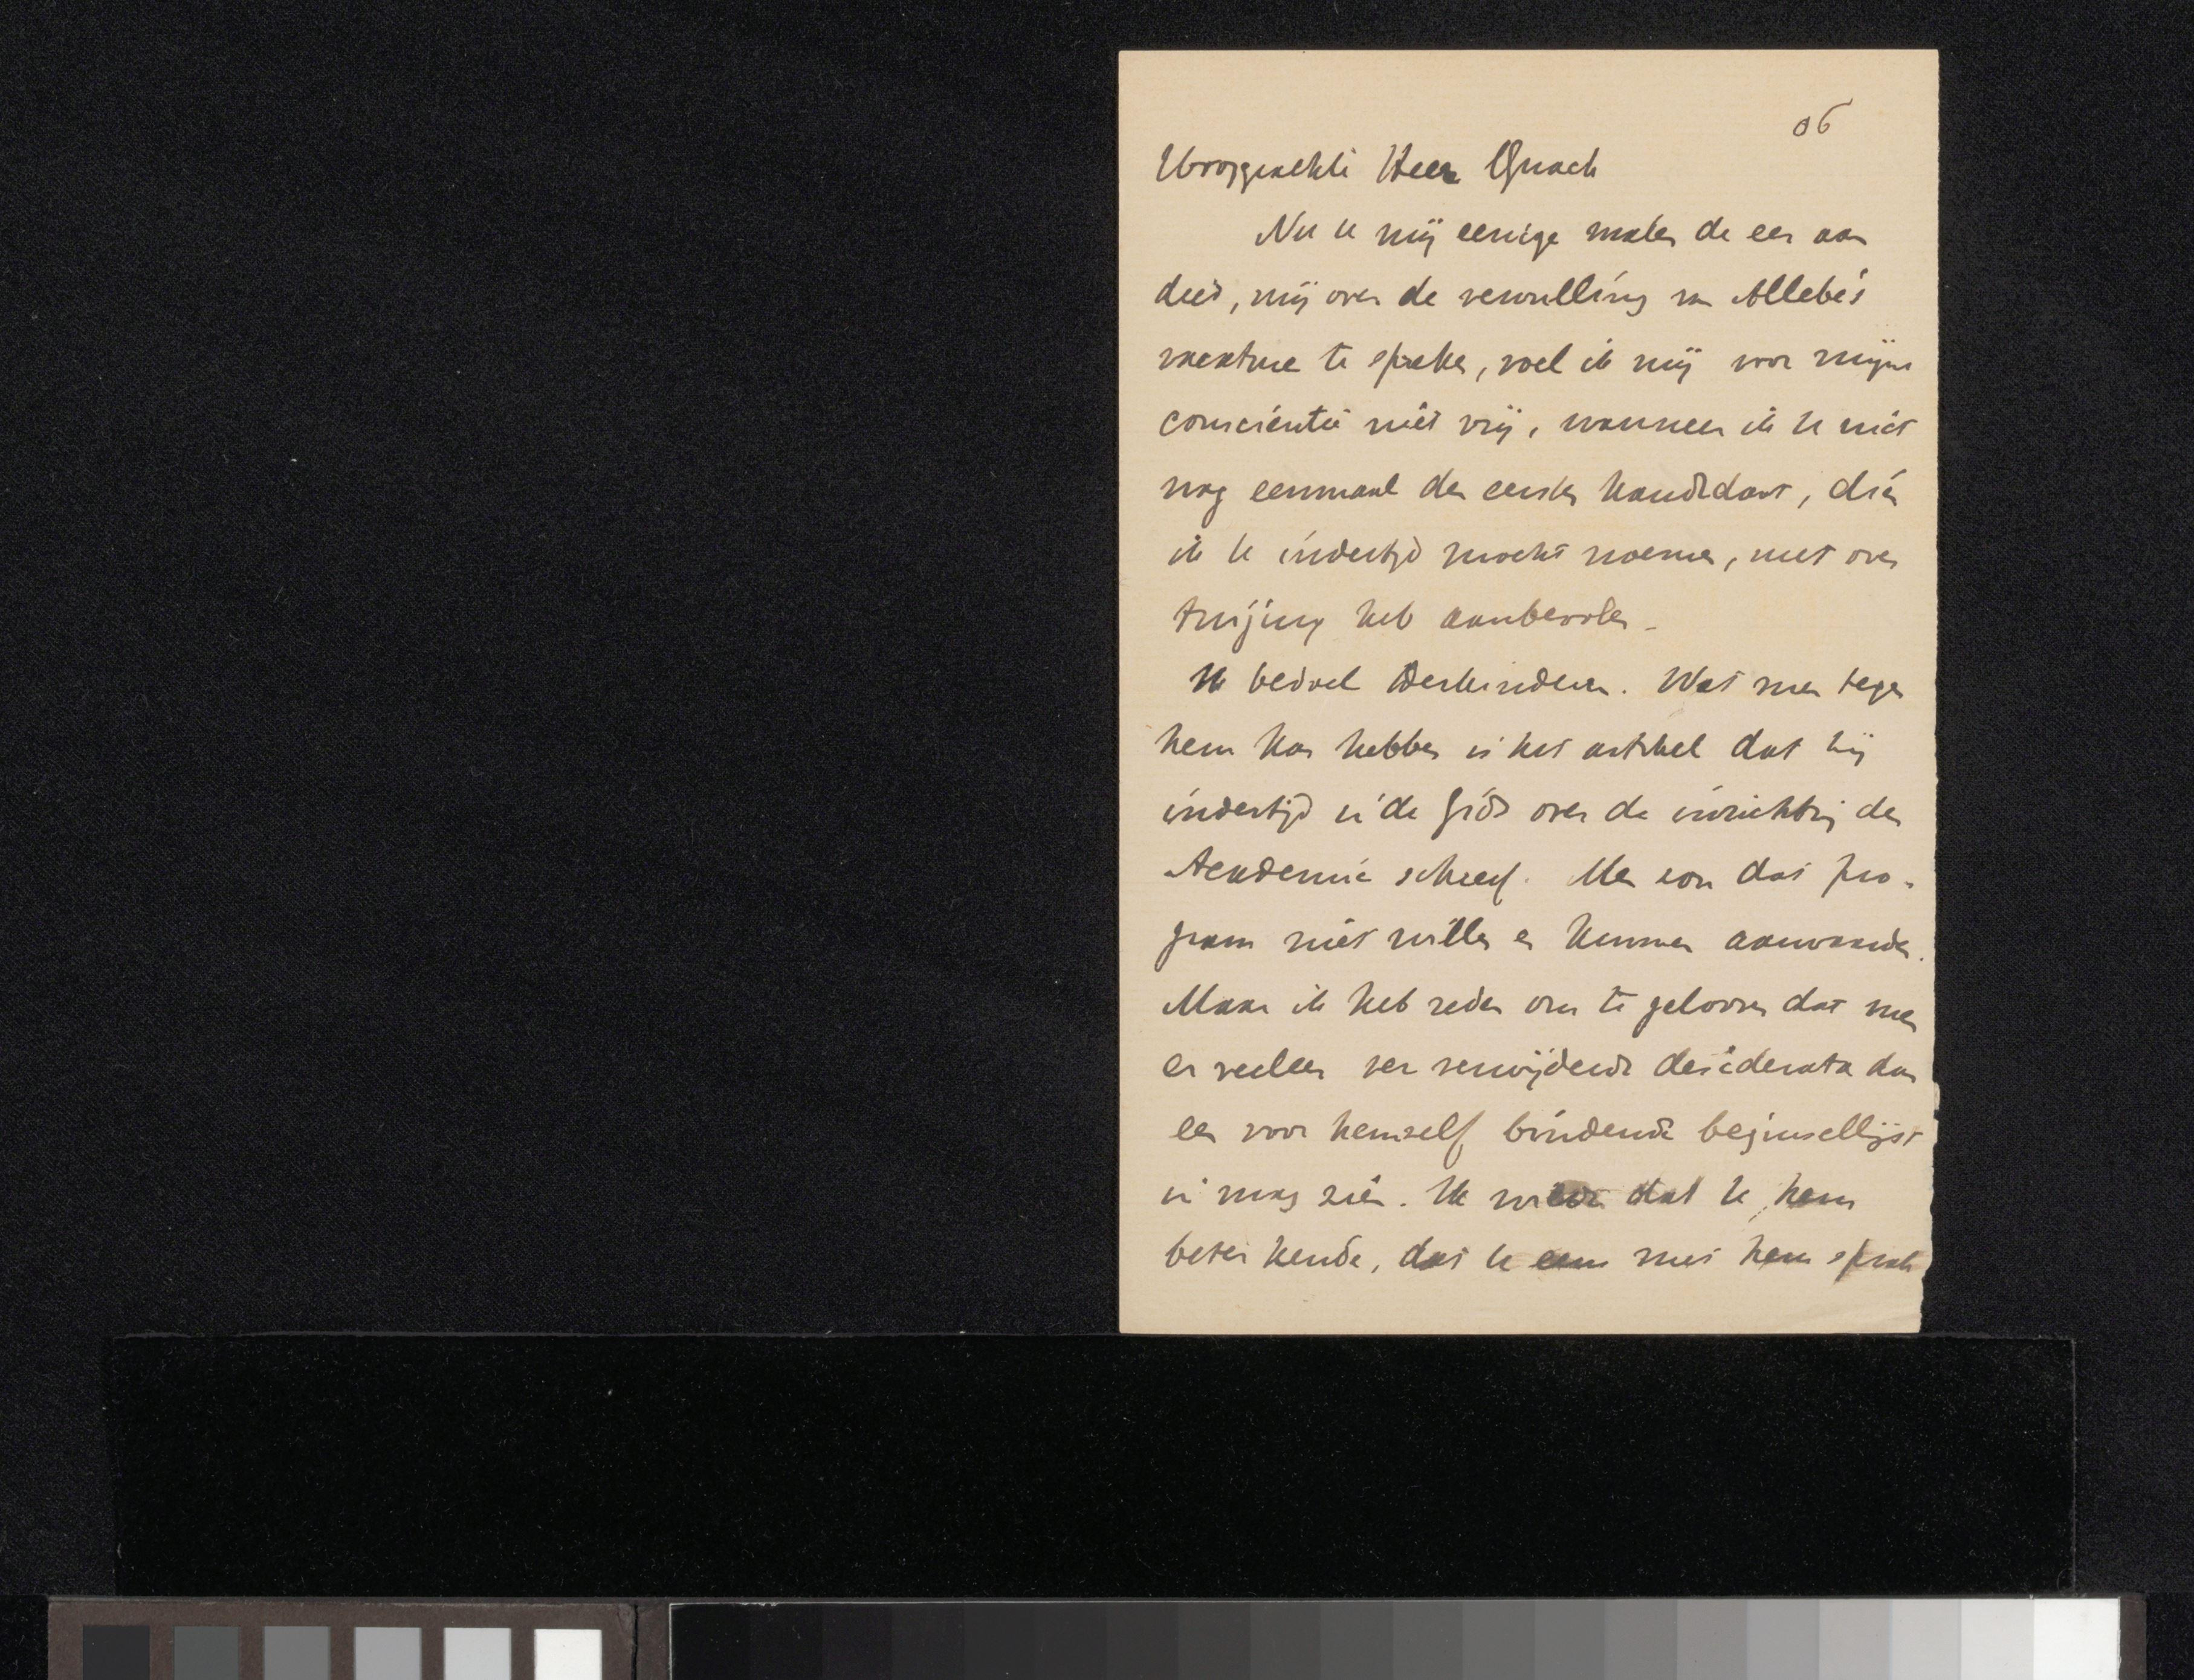 06
Hooggeachte Heer Quack
Nu U mij eenige malen de eer aan
deed, mij over de vervulling van Allebé's
vacature te spreken, voel ik mij voor mijn
conscientie niet vrij, wanneer ik U niet
nog eenmaal den eersten kandidaat, dien
ik U indertijd mocht noemen, met over
tuiging heb aanbevolen.
Ik bedoel Derkinderen. Wat men tegen
hem kan hebben is het artikel dat hij
indertijd in de Gids over de inrichting der
Academie schreef. Men zou dat pro-
gram niet willen en kunnen aanvaarden.
Maar ik heb reden om te gelooven dat men
er veeleer ver verwijderde desiderata dan
een voor hemzelf bindende beginsellijst
in mag zien. Ik wilde dat U hem
beter kende, dat U eens met hem sprak